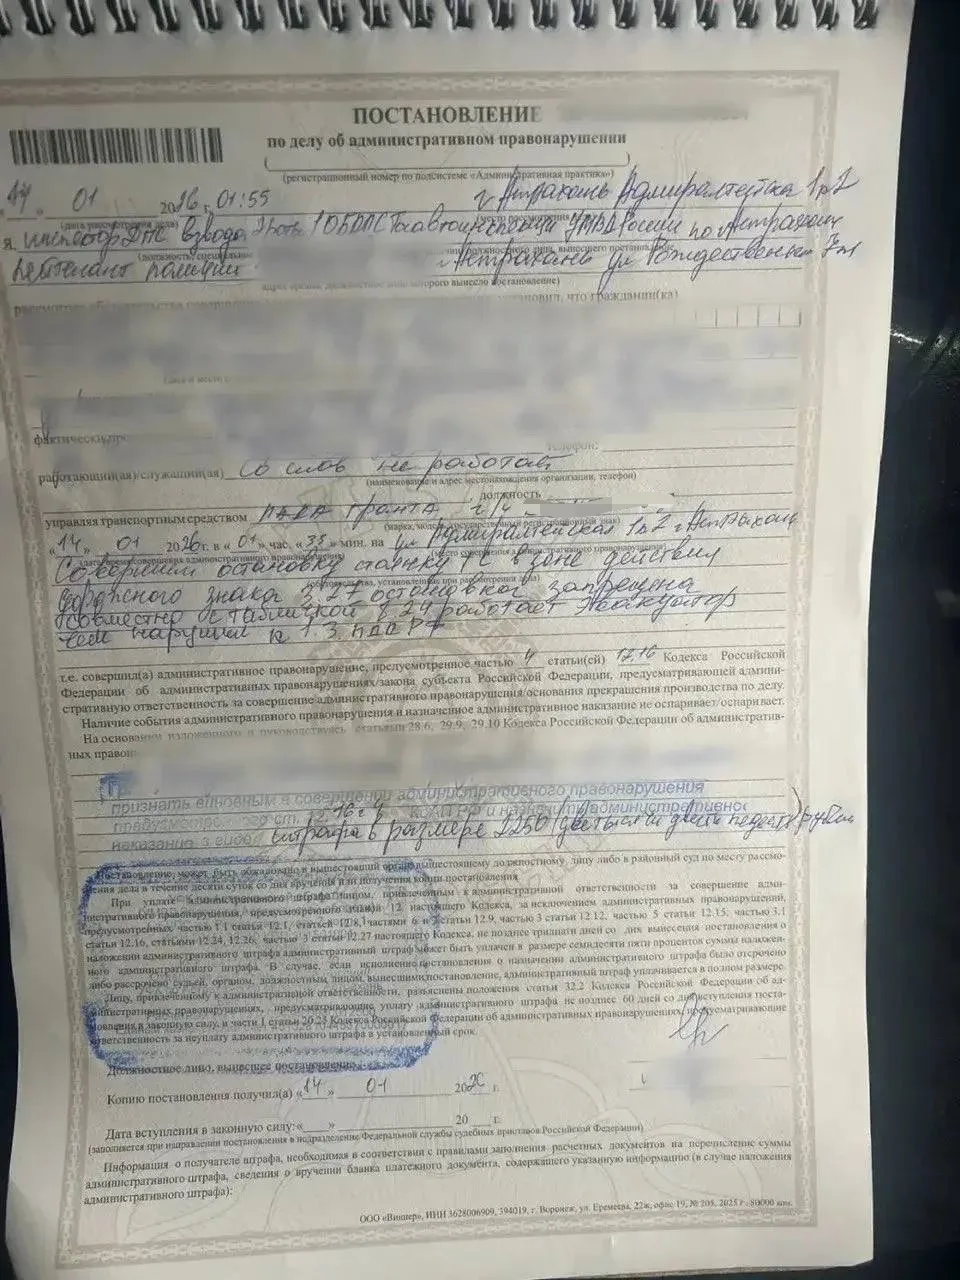 ПОСТАНОВЛЕНИЕ
по делу об административном правонарушении
(регистрационный номер по подсистеме «Административная практика»)
14 01 2026 г. 01:55 г. Астрахань Адмиралтейская 1 к 2
(дата рассмотрения дела)
Я, инспектор ДПС взвода 1 ОБДПС Госавтоинспекции УМВД России по Астрахани
должностного лица, вынесшего постановление
лейтенант полиции г. Астрахань ул Рождественского
которого вынесло постановление)
установил, что гражданин(ка)
фактически
телефон:
работающий(ая)/служащий(ая) со слов не работает
(наименование и адрес местонахождения организации, телефон)
, должность
управляя транспортным средством Лада Гранта г/н
(марка, модель, государственный регистрационный знак)
«14» 01 2026 г. в «01» час. «35» мин. на ул Адмиралтейская 1 к 2 г. Астрахань
Совершил остановку стоянку ТС в зоне действия
дорожного знака 3.27 остановка запрещена
совместно с табличкой 8.24 работает эвакуатор
чем нарушил п 1.3 ПДД РФ
т.е. совершил(а) административное правонарушение, предусмотренное частью 4 статьи(ей) 12.16 Кодекса Российской
Федерации об административных правонарушениях/закона субъекта Российской Федерации, предусматривающей админи-
стративную ответственность за совершение административного правонарушения/основания прекращения производства по делу.
Наличие события административного правонарушения и назначенное административное наказание не оспаривает/оспаривает.
На основании изложенного и руководствуясь статьями 28.6, 29.9, 29.10 Кодекса Российской Федерации об административ-
ных право
признать виновным в совершении административного правонарушения
предусмотренного ст. 12.16 ч 4 КоАП РФ и назначить административное
наказание в виде штрафа в размере 2250 (две тысячи двести пятьдесят) рублей
Постановление может быть обжаловано в вышестоящий орган, вышестоящему должностному лицу либо в районный суд по месту рассмо-
трения дела в течение десяти суток со дня вручения или получения копии постановления
При уплате административного штрафа лицом, привлеченным к административной ответственности за совершение адми-
нистративного правонарушения, предусмотренного главой 12 настоящего Кодекса, за исключением административных правонарушений,
предусмотренных частью 1.1 статьи 12.1, статьей 12.8, частями 6 и 7 статьи 12.9, частью 3 статьи 12.12, частью 5 статьи 12.15, частью 3.1
статьи 12.16, статьями 12.24, 12.26, частью 3 статьи 12.27 настоящего Кодекса, не позднее тридцати дней со дня вынесения постановления о
наложении административного штрафа административный штраф может быть уплачен в размере семидесяти пяти процентов суммы наложен-
ного административного штрафа. В случае, если исполнение постановления о назначении административного штрафа было отсрочено
либо рассрочено судьей, органом, должностным лицом, вынесшими постановление, административный штраф уплачивается в полном размере.
Лицу, привлеченному к административной ответственности, разъяснены положения статьи 32.2 Кодекса Российской Федерации об ад-
министративных правонарушениях, предусматривающие уплату административного штрафа не позднее 60 дней со дня вступления поста-
новления в законную силу, и части 1 статьи 20.25 Кодекса Российской Федерации об административных правонарушениях, предусматривающие
ответственность за неуплату административного штрафа в установленный срок.
Должностное лицо, вынесшее постановление
Копию постановления получил(а) «14» 01 2026 г.
Дата вступления в законную силу: « » 20 г.
(заполняется при направлении постановления в подразделение Федеральной службы судебных приставов Российской Федерации)
Информация о получателе штрафа, необходимая в соответствии с правилами заполнения расчетных документов на перечисление суммы
административного штрафа, сведения о вручении бланка платежного документа, содержащего указанную информацию (в случае наложения
административного штрафа):
ООО «Винпер», ИНН 3628006909, 394019, г. Воронеж, ул. Еремеева, 22ж, офис 19, № 205, 2025 г., 80000 экз.